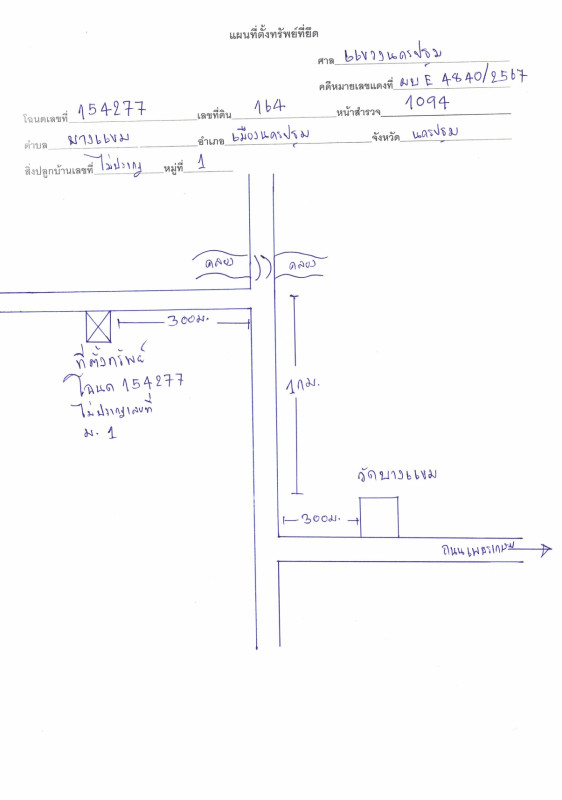 แผนที่ตั้งทรัพย์ที่ยึด
ศาล แขวงนครปฐม
คดีหมายเลขแดงที่ ผบE 4840/2567
โฉนดเลขที่ 154277 เลขที่ดิน 164 หน้าสำรวจ 1094
ตำบล บางแขม อำเภอ เมืองนครปฐม จังหวัด นครปฐม
สิ่งปลูกบ้านเลขที่ ไม่ปรากฏ หมู่ที่ 1
คลอง คลอง
300ม.
ที่ตั้งทรัพย์
โฉนด 154277
ไม่ปรากฏเลขที่
ม. 1
1กม.
วัดบางแขม
300ม.
ถนนเพชรเกษม